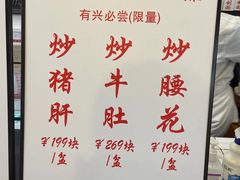 有兴必尝(限量)
炒猪肝
¥199块
/盆
炒牛肚
¥269块
/盆
炒腰花
¥199块
/盆